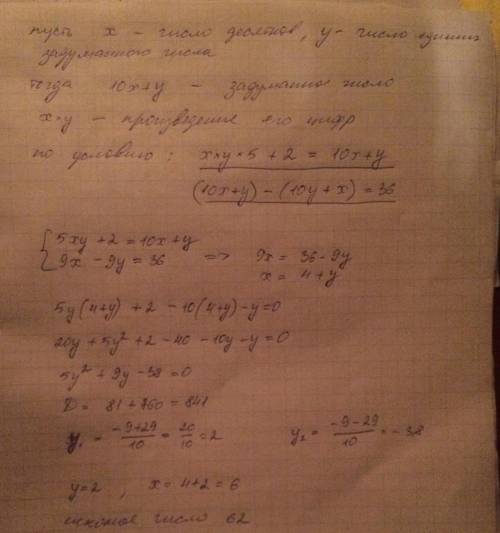 пусть x - число десятков, y - число единиц
задуманного числа
тогда 10x+y - задуманное число
x×y - произведение его цифр
по условию: x×y×5+2 = 10x+y
(10x+y)-(10y+x)=36
{5xy+2=10x+y
9x-9y=36 => 9x= 36-9y
x= 4+y
5y(4+y)+2-10(4+y)-y=0
20y+5y²+2-40-10y-y=0
5y²+9y-38=0
D= 81+760=841
y₁ = -9+29/10 = 20/10 = 2 y₂ = -9-29/10 = -38
y=2, x=4+2=6
искомое число 62